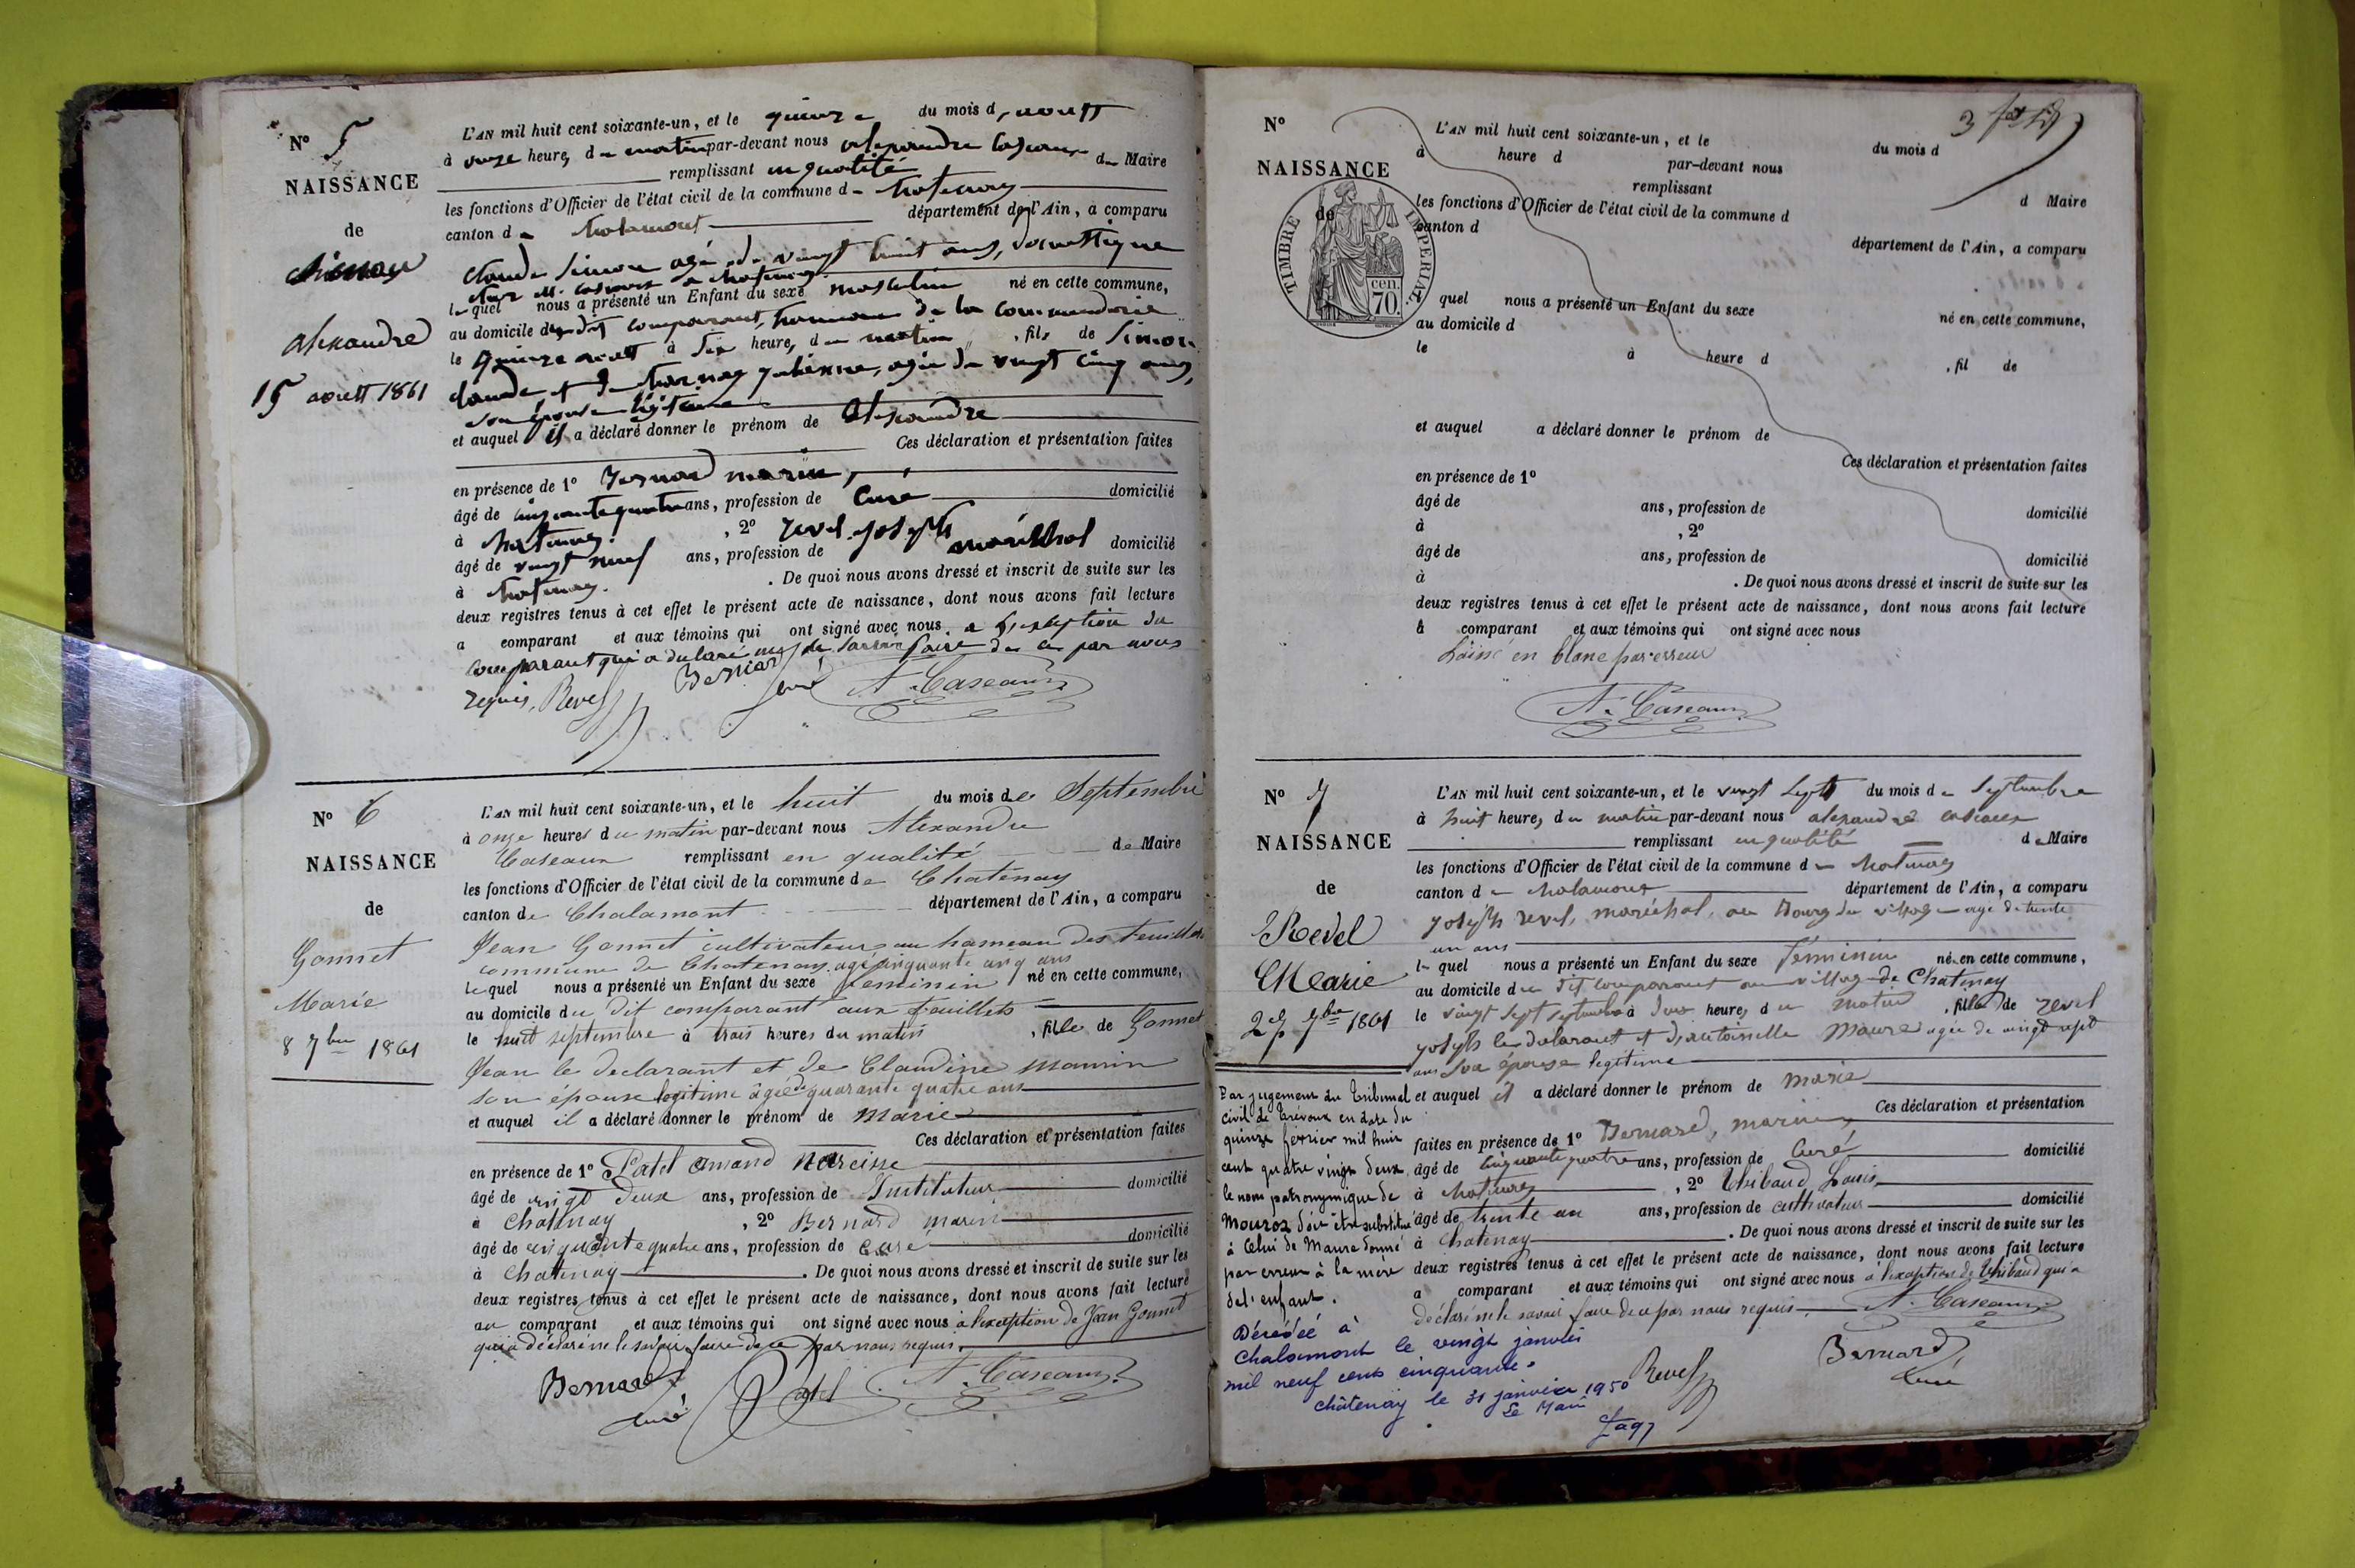 N° 5
NAISSANCE
de
Simon
alexandre
15 aoust 1861
L'AN mil huit cent soixante-un, et le quinze du mois d'aoust
à onze heures du matin par-devant nous alexandre caseaux
remplissant en qualité de Maire
les fonctions d'Officier de l'état civil de la commune de Chatenay
canton de Chalamont département de l'Ain, a comparu
claude Simon agé de vingt huit ans, domestique
chez M. caseaux a Chatenay
lequel nous a présenté un Enfant du sexe masculin né en cette commune,
au domicile du dit comparant, hameau de la commanderie
le quinze aoust à six heures du matin, fils de Simon
claude et de agée de vingt cinq ans,
son épouse légitime
et auquel il a déclaré donner le prénom de Alexandre
Ces déclaration et présentation faites
en présence de 1° Bernard marin,
âgé de cinquante quatre ans, profession de Curé domicilié
à Chatenay, 2° revel joseph
âgé de vingt neuf ans, profession de maréchal domicilié
à Chatenay. De quoi nous avons dressé et inscrit de suite sur les
deux registres tenus à cet effet le présent acte de naissance, dont nous avons fait lecture
a comparant et aux témoins qui ont signé avec nous a l'exception du
comparant qui a declaré ne le savoir faire de ce par nous
requis. Revel Bernard curé A. Caseaux
N° 6
NAISSANCE
de
Gonnet
Marie
8 7bre 1861
L'AN mil huit cent soixante-un, et le huit du mois de Septembre
à onze heures du matin par-devant nous Alexandre
Caseaux remplissant en qualité de Maire
les fonctions d'Officier de l'état civil de la commune de Chatenay
canton de Chalamont département de l'Ain, a comparu
Jean Gonnet cultivateur au hameau des feuillets
commune de Chatenay agé cinquante cinq ans
lequel nous a présenté un Enfant du sexe feminin né en cette commune,
au domicile du dit comparant aux feuillets
le huit septembre à trois heures du matin, fille de Gonnet
Jean le declarant et de Claudine Mamin
son épouse legitime âgée de quarante quatre ans
et auquel il a déclaré donner le prénom de Marie
Ces déclaration et présentation faites
en présence de 1° Patel amand Narcisse
âgé de vingt deux ans, profession de Instituteur domicilié
à Chatenay, 2° Bernard marin
âgé de cinquante quatre ans, profession de curé domicilié
à Chatenay. De quoi nous avons dressé et inscrit de suite sur les
deux registres tenus à cet effet le présent acte de naissance, dont nous avons fait lecture
au comparant et aux témoins qui ont signé avec nous à l'exception de Jean Gonnet
qui a déclaré ne le savoir faire de ce par nous requis.
Bernard curé Patel A. Caseaux
3
N°
NAISSANCE
de
TIMBRE IMPERIAL
70 cen.
L'AN mil huit cent soixante-un, et le du mois d
à heure d par-devant nous
remplissant d Maire
les fonctions d'Officier de l'état civil de la commune d
canton d département de l'Ain, a comparu
l quel nous a présenté un Enfant du sexe né en cette commune,
au domicile d
le à heure d , fil de
et auquel a déclaré donner le prénom de
Ces déclaration et présentation faites
en présence de 1°
âgé de ans, profession de domicilié
à , 2°
âgé de ans, profession de domicilié
à . De quoi nous avons dressé et inscrit de suite sur les
deux registres tenus à cet effet le présent acte de naissance, dont nous avons fait lecture
à comparant et aux témoins qui ont signé avec nous
Laissé en blanc par erreur
A. Caseaux
N° 7
NAISSANCE
de
Revel
Marie
27 7bre 1861
L'AN mil huit cent soixante-un, et le vingt Sept du mois de Septembre
à huit heures du matin par-devant nous alexandre caseaux
remplissant en qualité de Maire
les fonctions d'Officier de l'état civil de la commune de Chatenay
canton de Chalamont département de l'Ain, a comparu
joseph revel, maréchal, au Bourg du village agé de trente
un ans
lequel nous a présenté un Enfant du sexe féminin né en cette commune,
au domicile du dit comparant au village de Chatenay
le vingt sept septembre à deux heures du matin, fille de revel
joseph le declarant et d'antoinette Maure agée de vingt sept
ans son épouse legitime
et auquel il a déclaré donner le prénom de marie
Ces déclaration et présentation
faites en présence de 1° Bernard, marin,
âgé de cinquante quatre ans, profession de Curé domicilié
à Chatenay, 2° Thibaud Louis
âgé de trente un ans, profession de cultivateur domicilié
à Chatenay. De quoi nous avons dressé et inscrit de suite sur les
deux registres tenus à cet effet le présent acte de naissance, dont nous avons fait lecture
a comparant et aux témoins qui ont signé avec nous à l'exception de Thibaud qui a
déclaré ne le savoir faire de ce par nous requis A. Caseaux
Revel Bernard curé
Par jugement du Tribunal
civil de Trévoux en date du
quinze février mil huit
cent quatre vingt deux
le nom patronymique de
Mouroz doit être substitué
à celui de Maure donné
par erreur à la mère
de l'enfant.
Décédée à
Chalamont le vingt janvier
mil neuf cent cinquante.
Châtenay le 31 janvier 1950
Le Maire